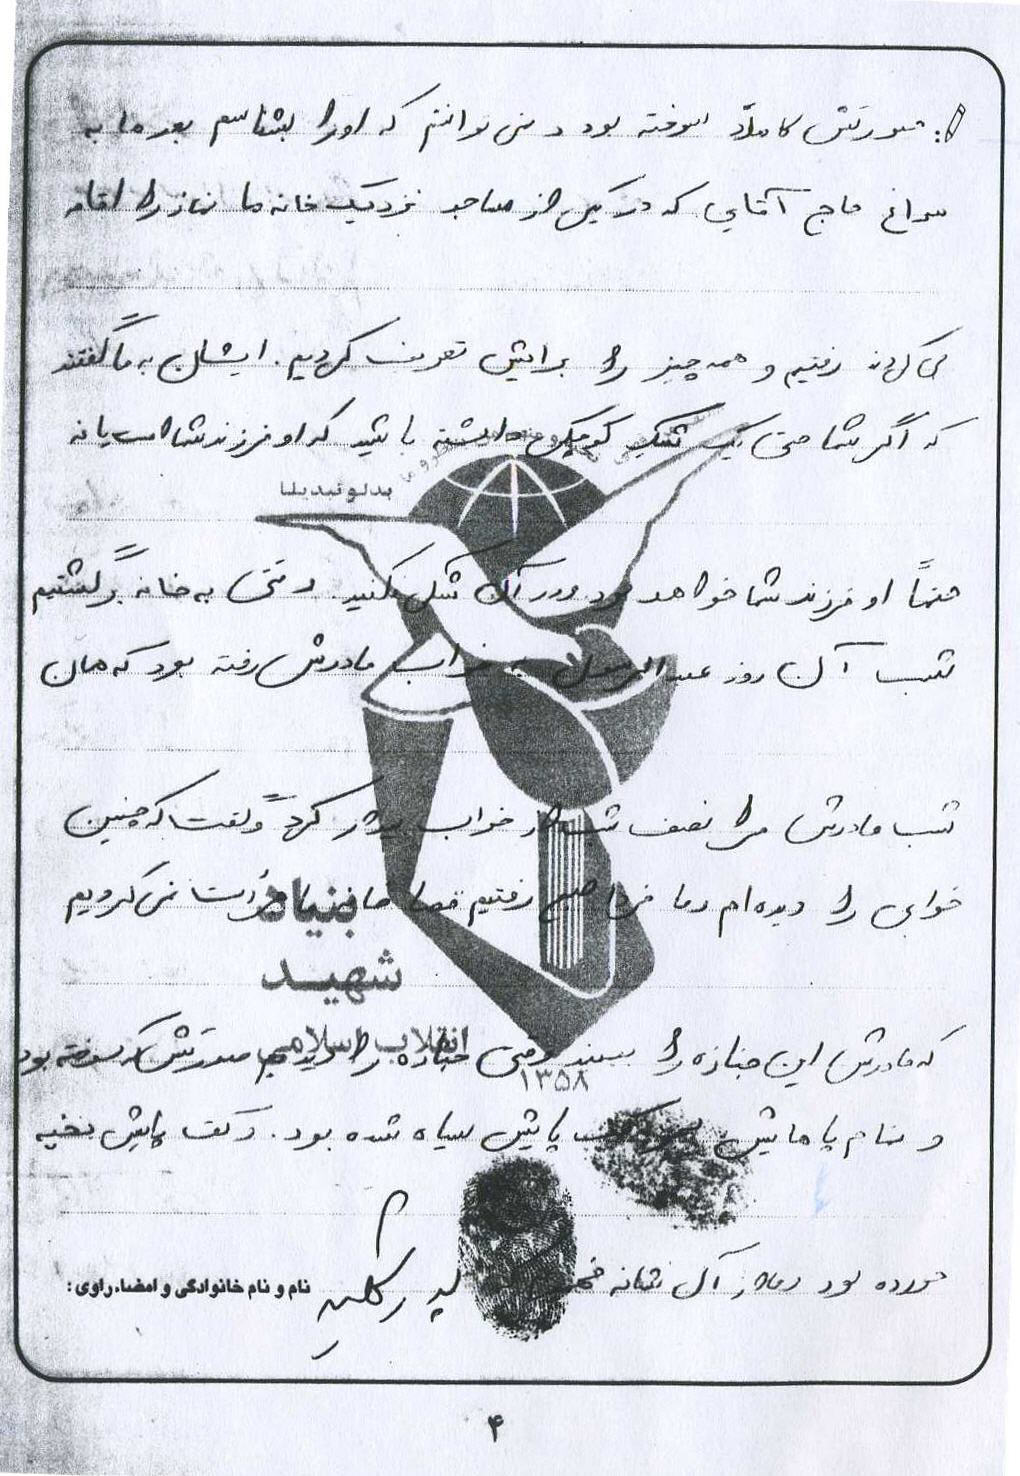 ج: صورتش کاملاً سوخته بود و نمی توانستم که او را بشناسم بعد ما به
سراغ حاج آقایی که در یکی از مساجد نزدیک خانه ما نماز را اقامه
می کردند رفتیم و همه چیز را برایش تعریف کردیم. ایشان به ما گفتند
که اگر شما حتی یک شک کوچکی داشته باشید که او فرزند شما است یا نه
حتماً او فرزند شما خواهد بود و در آن شک نکنید. وقتی به خانه برگشتیم
شب آن روز عبدالرسول به خواب مادرش رفته بود که همان
شب مادرش مرا نصف شب از خواب بیدار کرد و گفت که چنین
خوابی را دیده ام و ما فردا صبح رفتیم جرأت نمی کردیم
که مادرش این جنازه را ببیند وقتی جنازه را دیدیم صورتش که سوخته بود
و تمام پاهایش پایش سیاه شده بود. و کف پایش بخیه
خورده بود و ما از آن نشانه
نام و نام خانوادگی و امضاء راوی:
بنیاد
شهید
انقلاب اسلامی
۱۳۵۸
۴